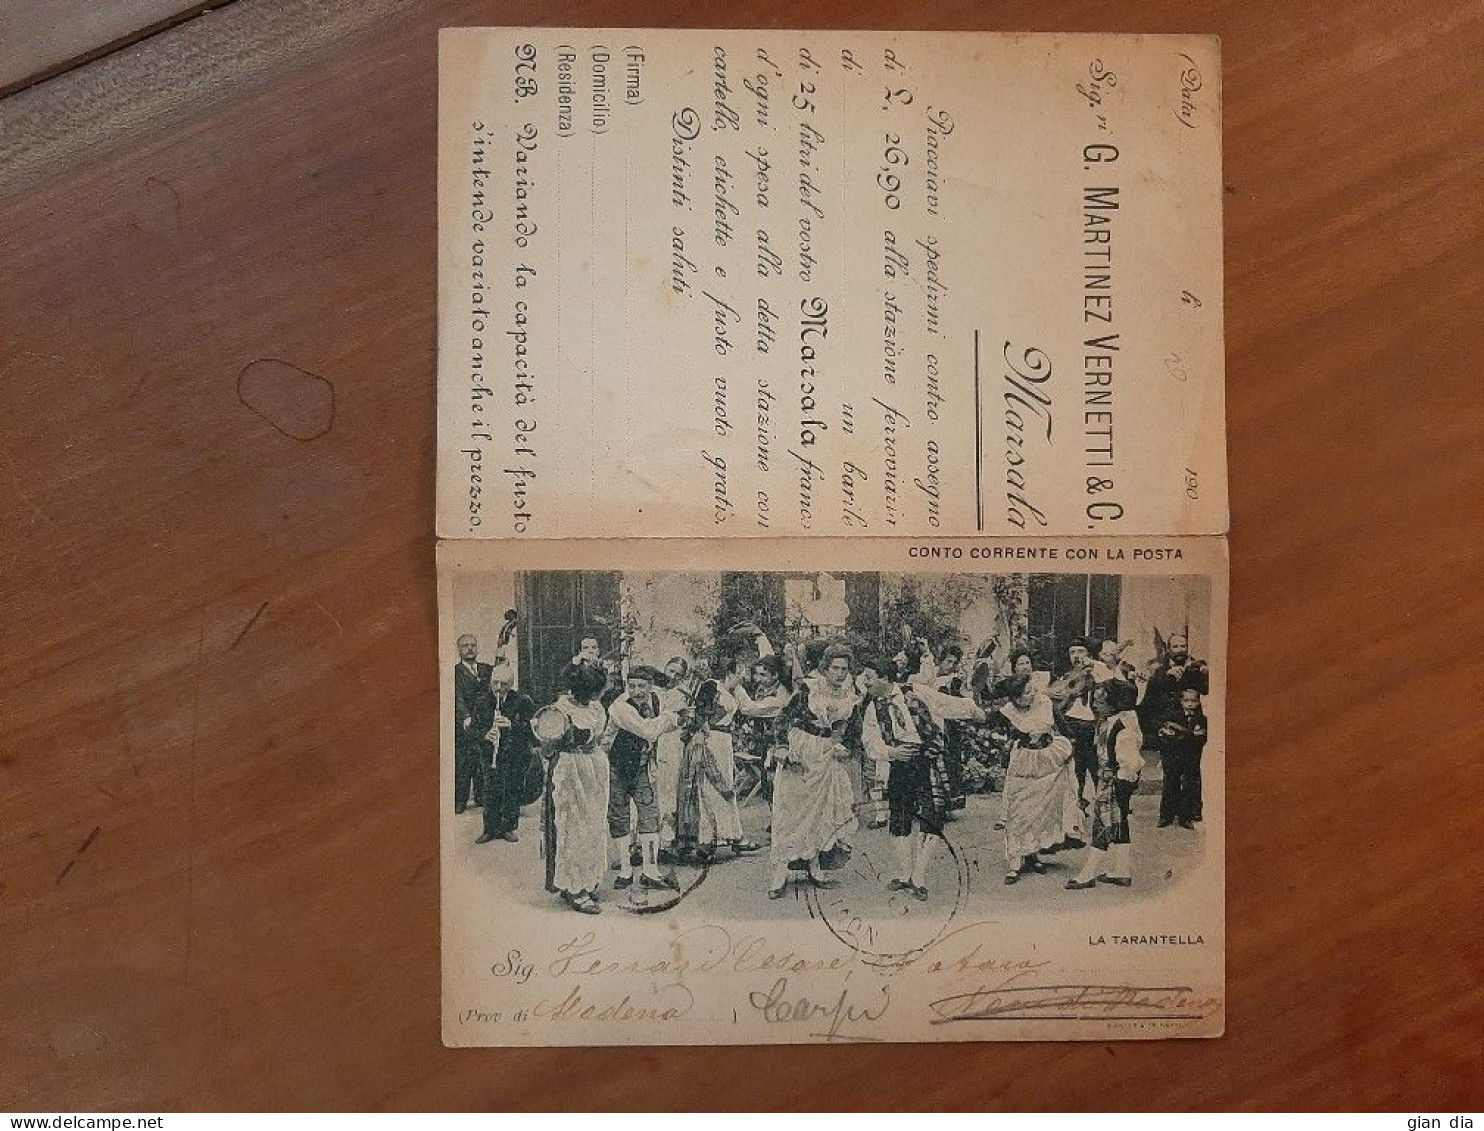 (Data) li 190
Sig.ri G. MARTINEZ VERNETTI & C.
Marsala
Piacciavi spedirmi contro assegno
di L. 26,90 alla stazione ferroviaria
di un barile
di 25 litri del vostro Marsala franco
d'ogni spesa alla detta stazione con
cartello, etichette e fusto vuoto gratis.
Distinti saluti
(Firma)
(Domicilio)
(Residenza)
NB. Variando la capacità del fusto
s'intende variato anche il prezzo.
CONTO CORRENTE CON LA POSTA
LA TARANTELLA
Sig. Ferrari Cesare, Notaio
(Prov. di Modena ) Carpi Novi di Modena
gian dia